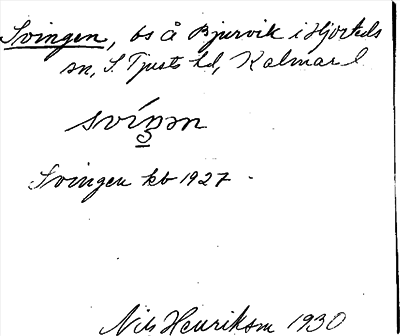 Svingen, bs å Bjurvik i Hjorteds
sn, S. Tjusts hd, Kalmar l
svíŋən
Svingen kb 1927.
Nils Henrikson 1930